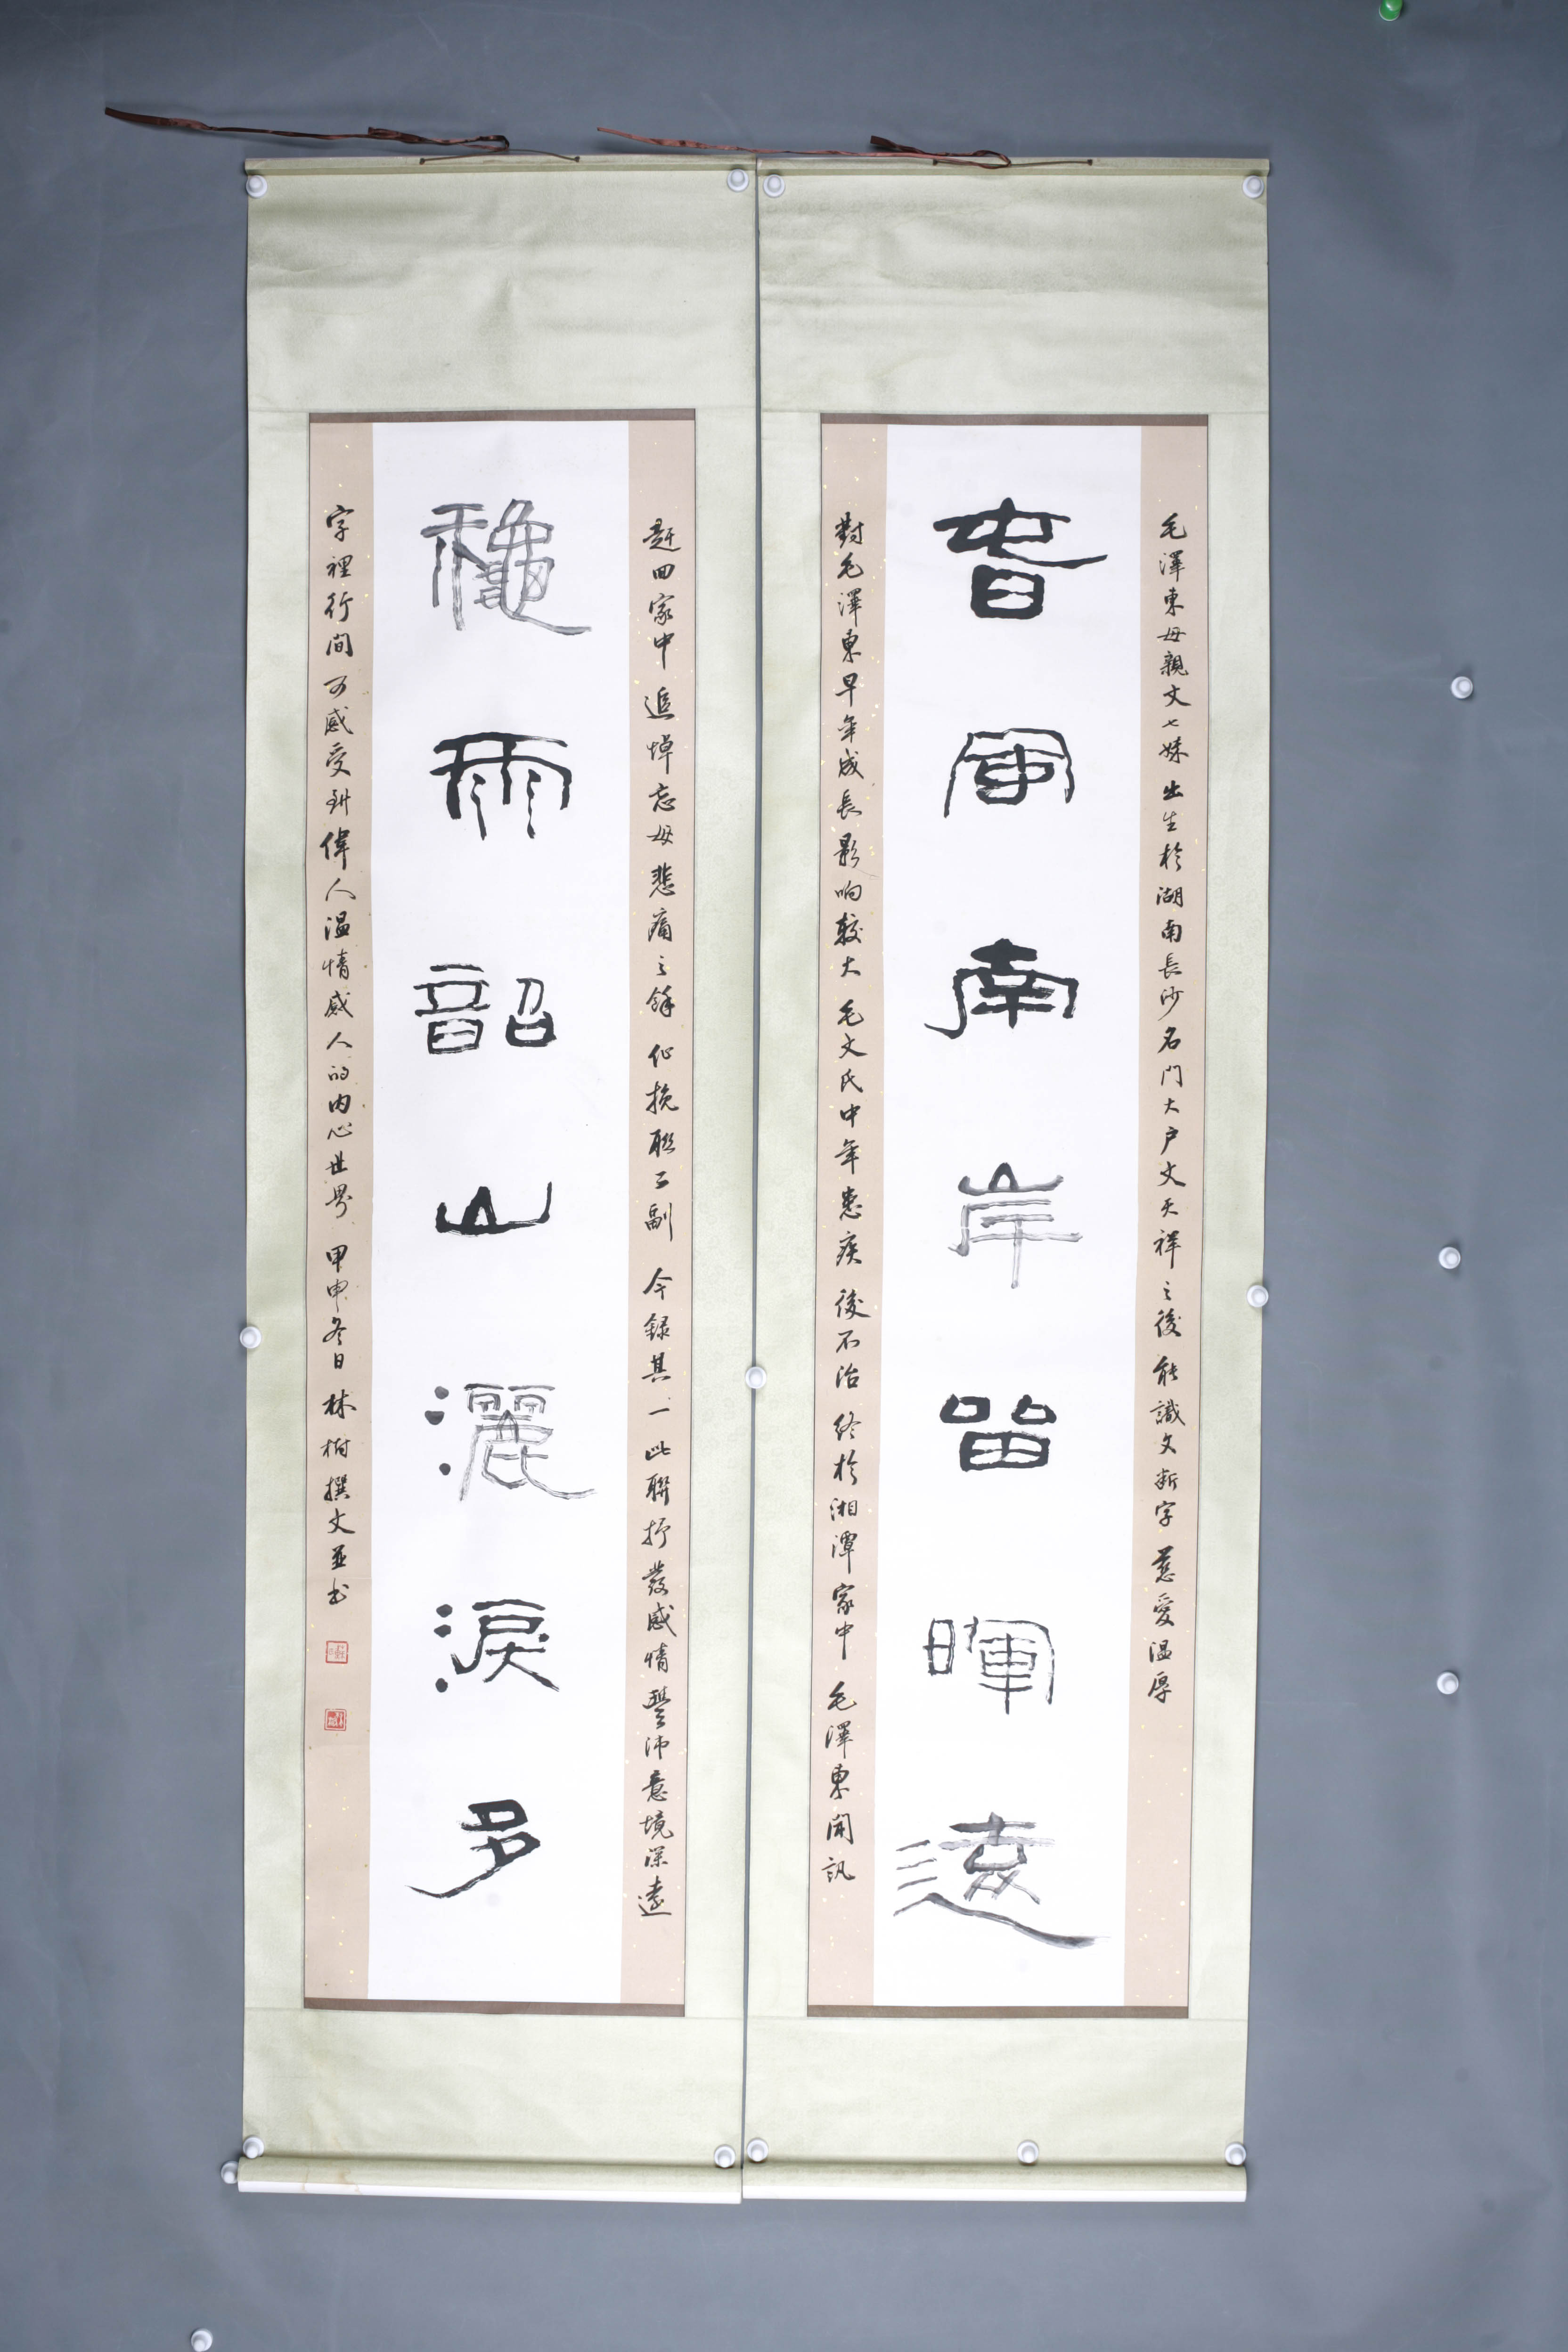 毛澤東母親文七妹出生於湖南長沙名門大戶文天祥之後能識文斷字慈愛温厚
春風南岸留暉遠
對毛澤東早年成長影响較大毛文氏中年患疾後不治終於湘潭家中毛澤東聞訊
趕回家中追悼亡母悲痛之餘作挽聯二副今録其一此聯抒發感情豐沛意境深遠
秋雨韶山灑淚多
字裡行間可感受到偉人温情感人的内心世界甲申冬日林樹撰文並书